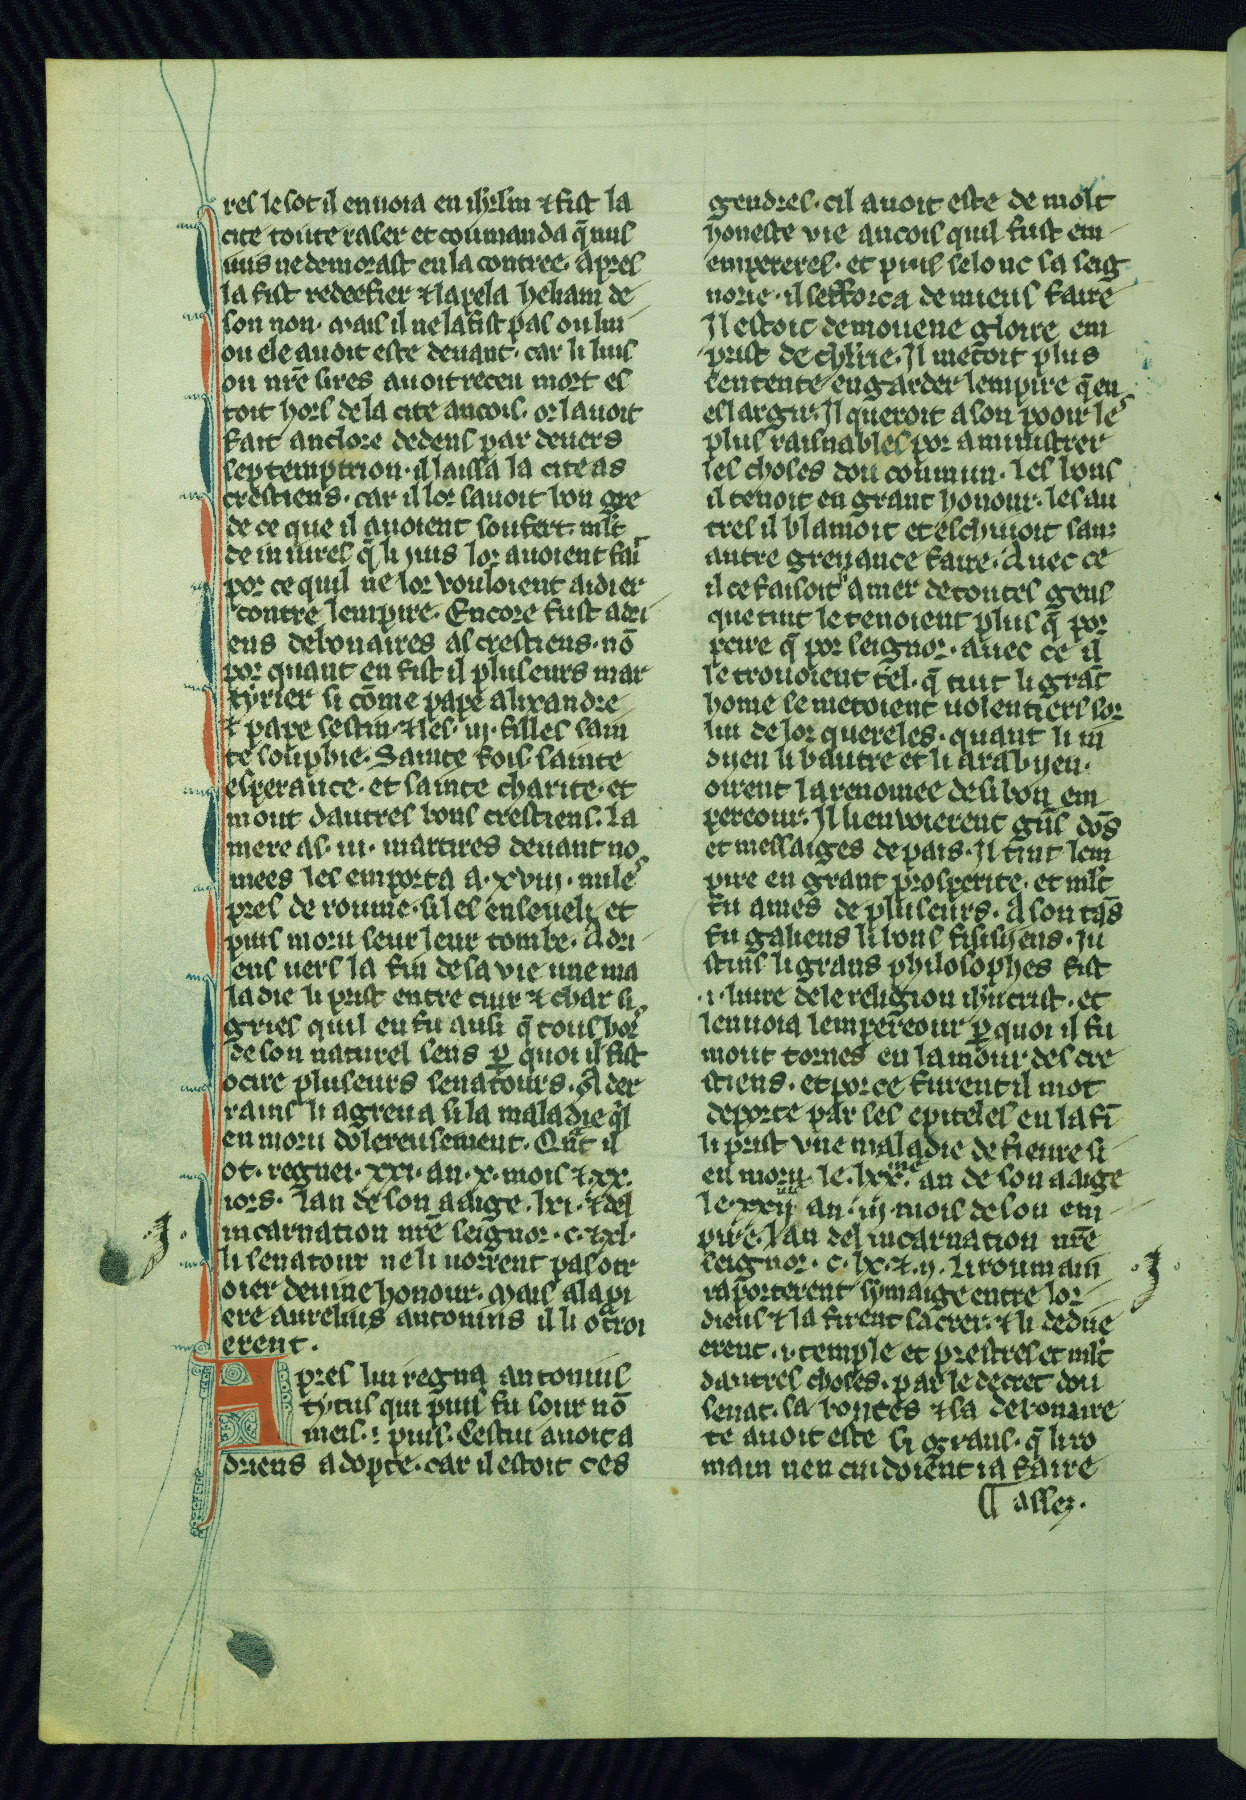 res le sot il enuoia en ihrlm ⁊ fist la
cite toute raser et coumanda q̄ nus
iuis ne demorast en la contree. Apres
la fist redeefier ⁊ lapela heliam de
son non. Mais il ne la fist pas ou liu
ou ele auoit este deuant. car li lius
ou nr̄e sires auoit receu mort es
toit hors de la cite ancois. or lauoit
fait anclore dedens par deuers
septemptrion. il laissa la cite as
crestiens. car il lor sauoit bon gre
de ce que il auoient soufert. ml̄t
de iniures q̄ li iuis lor auoient fai
por ce quil ne lor vouloient aidier
contre lempire. Encore fust adri
ens debonaires as crestiens. nō
por quant en fist il pluseurs mar
tyrier si cōme pape alixandre
⁊ pape sestin. ⁊ les .iii. filles sain
te souphie. Sainte fois. sainte
esperance. et sainte charite. et
mout dautres bons crestiens. La
mere as .iii. martires deuant no
mees les emporta a .xviii. mile
pres de roume. si les enseueli et
puis moru seur leur tombe. Adri
ens uers la fin de sa vie une ma
ladie li prist entre cuir ⁊ char si
gries quil en fu ausi q̄ tous hors
de son naturel sens ꝑ quoi il fist
ocire pluseurs senatours. Al der
rains li agreua si la maladie q̄l
en moru dolereusement. Qn̄t il
ot. regnei. xxi. an. x. mois ⁊. xx.
iors. Lan de son aaige. lxi. ⁊ del
incarnation nr̄e seignor. c. ⁊ xl.
li senatour ne li uorrent pas otr
oier deuine honour. Mais a la pi
ere aurelius antonius il li otroi
erent.
Apres lui regna antonius
tytus qui puis fu sour nō
meis .i. puis. Cestui auoit a
driens adopte. car il estoit ces
gendres. cil auoit este de molt
honeste vie ancois quil fust em
empereres. et puis selonc sa seig
norie. il sefforca de mieus faire
Il estoit de moiene gloire em
prist de ch'l'rie. Il metoit plus
sentente en garder lempire q̄ en
eslargir. Il queroit a son pooir les
plus raisnables por aministrer
les choses dou coumun. Les bons
il tenoit en grant honour. les au
tres il blamoit et eschiuoit sanz
autre greuance faire. Auec ce
il ce faisoit amer de toutes gens
que tuit le tenoient plus q̄ por
peire q̄ por seignor. auec ce il
le trouoient tel. q̄ tuit li grāt
home se metoient uolentiers sor
lui de lor quereles. quant li in
dyen li bautre et li arabyen.
oirent la renomee de si bon em
pereour. Il li enuoierent grās dōs
et messaiges de pais. Il tint lem
pire en grant prosperite. et ml̄t
fu ames de pluseurs. A son tās
fu galiens li bons fisisyens. Iu
stins li grans philosophes fist
.i. liure de le religion ihū crist. et
lenuoia lempereour ꝑ quoi il fu
mout tornes en lamour des cre
stiens. et por ce furent il mot
deporte par ses epiteles en la fī
li prist vne maladie de fieure si
en moru. le. lxx.me an de son aaige
le. xxii an. iii. mois de son em
pire. Lan del incarnation nr̄e
seignor. c. lx. ⁊. ii. Li roumain
raporterent symaige entre lor
dieus ⁊ la firent sacrer. ⁊ li dedue
erent .i. temple et prestres et ml̄t
dautres choses. par le decret dou
senat. sa bontes ⁊ sa debonaire
te auoit este si grans. q̄ li ro
main nen cuidoient ia faire
assez.